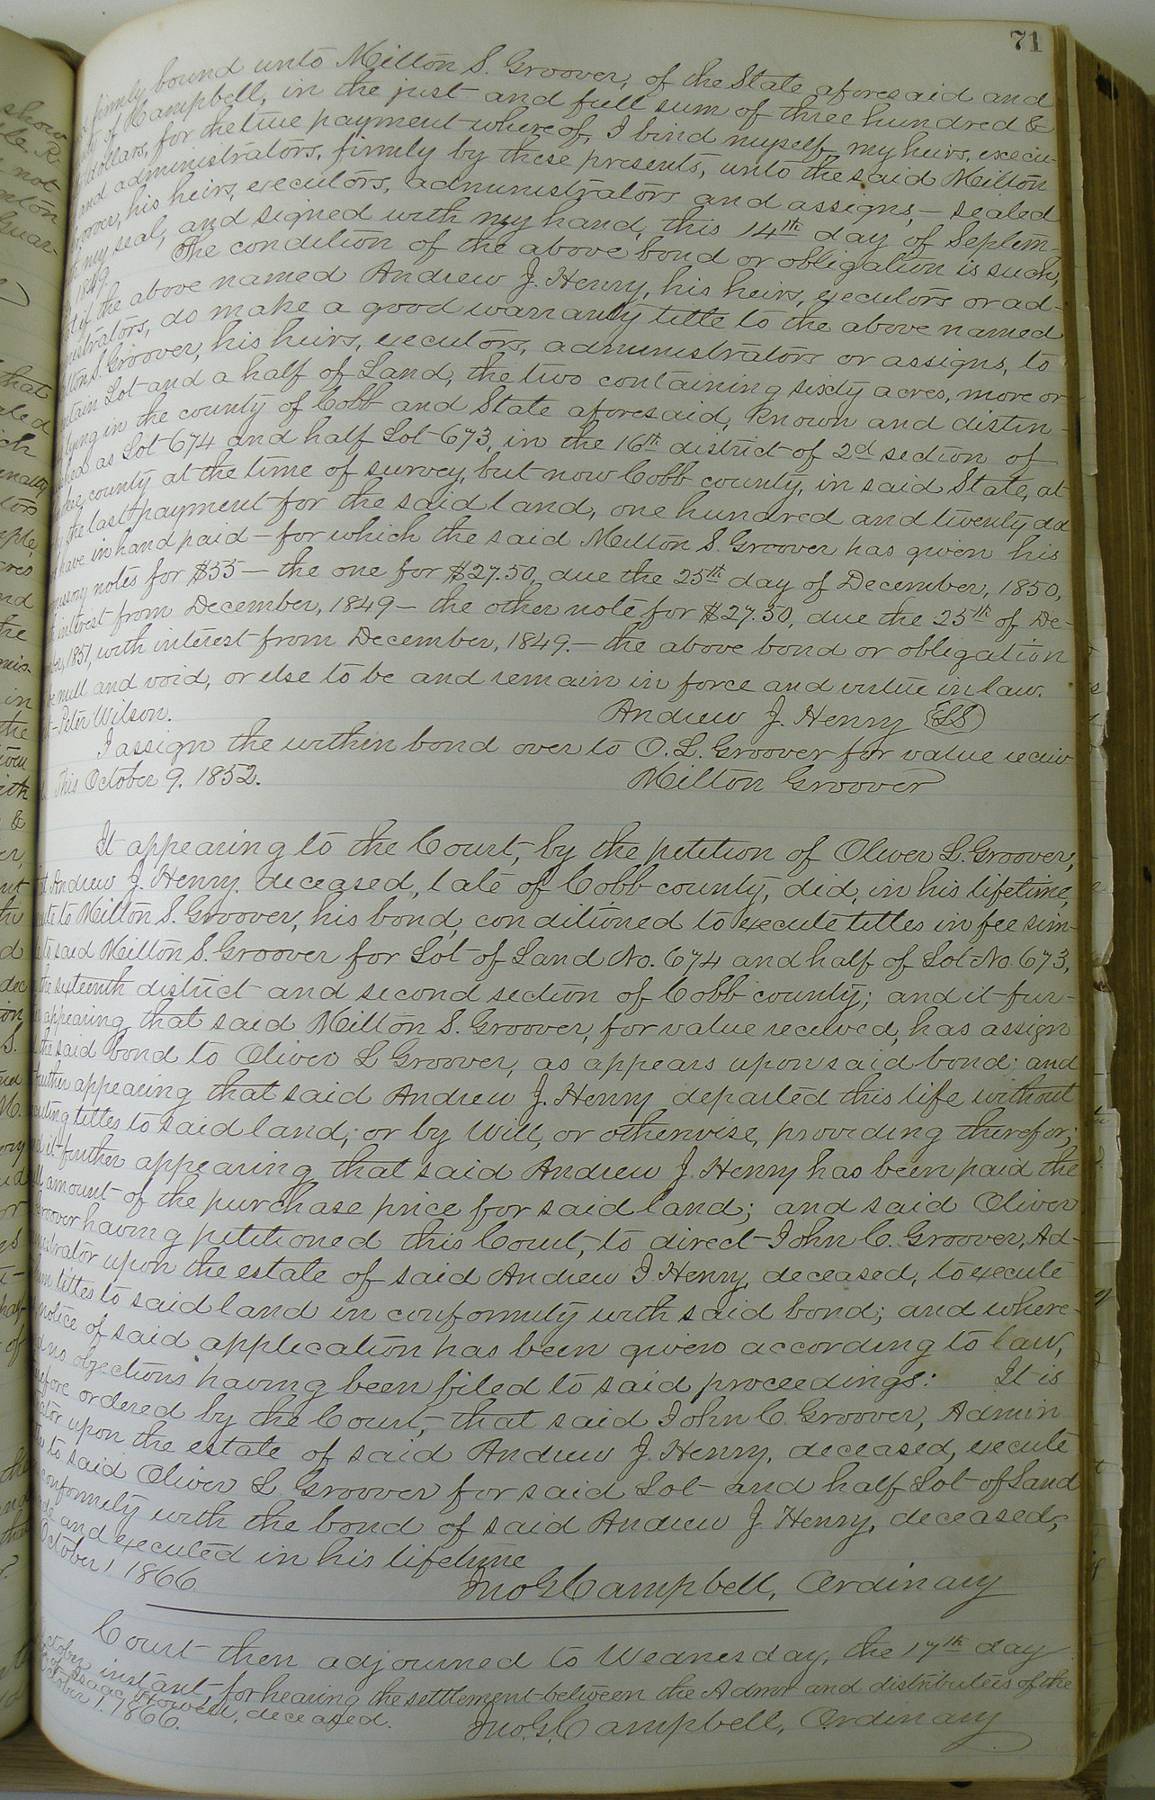 71
firmly bound unto Milton S. Groover, of the State aforesaid and
of Campbell, in the just and full sum of three hundred &
dollars, for the true payment whereof, I bind myself, my heirs, execu-
and administrators, firmly by these presents, unto the said Milton
his heirs, executors, administrators and assigns, — sealed
my seal, and signed with my hand, this 14th day of Septem-
1849.
The condition of the above bond or obligation is such,
if the above named Andrew J. Henry, his heirs, executors or ad-
do make a good warranty title to the above named
S. Groover, his heirs, executors, administrators or assigns, to
Lot and a half of Land, the two containing sixty acres, more or
lying in the county of Cobb and State aforesaid, known and distin-
as Lot 674 and half Lot 673, in the 16th district of 2d section of
county at the time of survey, but now Cobb county, in said State, at
the last payment for the said land, one hundred and twenty dol
have in hand paid — for which the said Milton S. Groover has given his
notes for $55 — the one for $27.50, due the 25th day of December, 1850,
interest from December, 1849 — the other note for $27.50, due the 25th of De-
1851, with interest from December, 1849. — the above bond or obligation
null and void, or else to be and remain in force and virtue in law.
Peter Wilson. Andrew J. Henry (LS)
I assign the within bond over to O. L. Groover for value receiv
this October 9. 1852. Milton Groover
It appearing to the Court, by the petition of Oliver L. Groover,
Andrew J. Henry, deceased, late of Cobb county, did, in his lifetime,
to Milton S. Groover, his bond, conditioned to execute titles in fee sim-
said Milton S. Groover for Lot of Land No. 674 and half of Lot No. 673,
the sixteenth district and second section of Cobb county; and it fur-
appearing that said Milton S. Groover, for value received, has assign
the said bond to Oliver L Groover, as appears upon said bond; and
further appearing that said Andrew J. Henry departed this life without
titles to said land; or by Will, or otherwise, providing therefor;
it further appearing that said Andrew J. Henry has been paid the
amount of the purchase price for said land; and said Oliver
Groover having petitioned this Court, to direct John C. Groover, Ad-
upon the estate of said Andrew J Henry, deceased, to execute
titles to said land in conformity with said bond; and where-
notice of said application has been given according to law,
no objections having been filed to said proceedings: It is
ordered by the Court, that said John C. Groover, Admin
upon the estate of said Andrew J. Henry, deceased, execute
to said Oliver L. Groover for said Lot and half Lot of Land
conformity with the bond of said Andrew J. Henry, deceased,
and executed in his lifetime
October 1, 1866 Jno G. Campbell, Ordinary
Court then adjourned to Wednesday, the 17th day
October, instant, for hearing the settlement between the Admr and distributees of the
of Isaac Howell, deceased.
October 1. 1866. Jno. G. Campbell, Ordinary